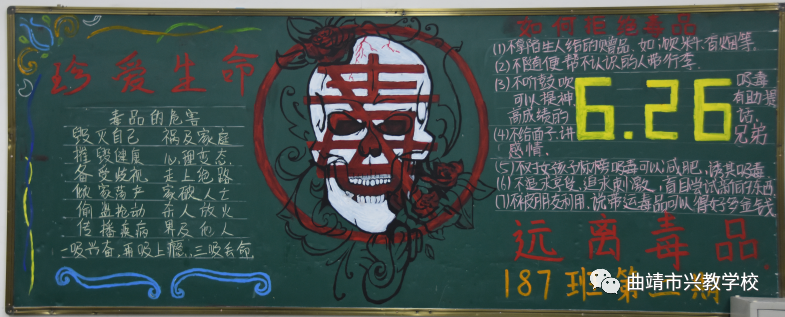 珍爱生命
毒品的危害
毁灭自己 祸及家庭
摧毁健康 心理变态
备受歧视 走上绝路
倾家荡产 家破人亡
偷盗抢劫 杀人放火
传播疾病 累及他人
一吸兴奋,再吸上瘾,三吸去命
毒
如何拒绝毒品
(1)不拿陌生人给的赠品,如:饮料、香烟等。
(2)不随便帮不认识的人带行李。
(3)不听鼓吹吸毒
可以提神有助提
高成绩的话。
(4)不给面子,讲兄弟
感情。
6.26
(5)不对女孩子标榜吸毒可以减肥,诱其吸毒
(6)不追求享受,追求刺激,盲目尝试新的东西
(7)不被朋友利用,说带运毒品可以得好多金钱
远离毒品
187班第二期
曲靖市兴教学校